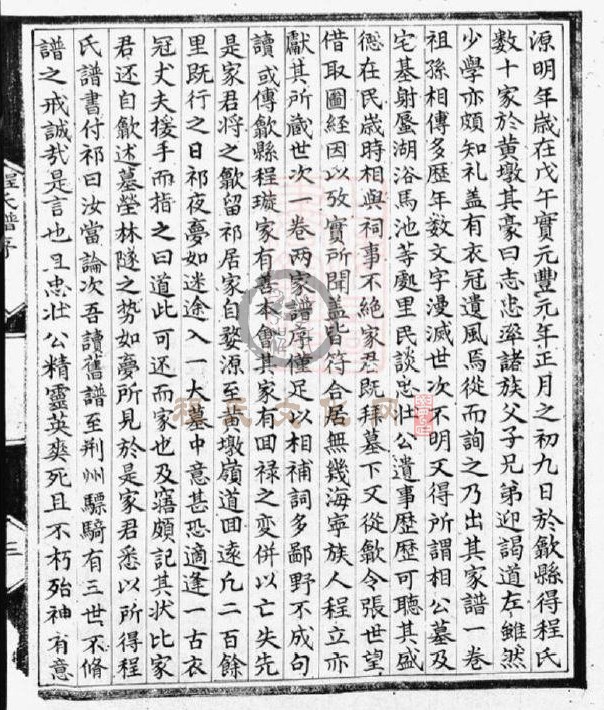 源明年歲在戊午實元豐元年正月之初九日於歙縣得程氏
数十家於黄墩其豪曰志忠率諸族父子兄弟迎謁道左雖然
少学亦頗知礼盖有衣冠遺風焉從而詢之乃出其家譜一卷
祖孫相傳多歷年数文字漫滅世次不明又得所謂相公墓及
宅基射蜃湖浴馬池等處里民談忠壮公遺事歴歴可聽其盛
德在民歲時相與祠事不絶家君既拜墓下又從歙令張世望
借取圖經因以攷實所聞盖皆符合居無幾海寧族人程立亦
獻其所藏世次一卷兩家譜序僅足以相補詞多鄙野不成句
讀或傳歙縣程璇家有善本會其家有回禄之変併以亡失先
是家君将之歙留祁居家自婺源至黄墩嶺道回遠凢二百餘
里既行之日祁夜夢如迷途入一大墓中意甚恐適逢一古衣
冠丈夫援手而指之曰道此可还而家也及寤頗記其状比家
君还自歙述墓塋林隧之势如夢所見於是家君悉以所得程
氏譜書付祁曰汝當論次吾讀舊譜至荆州驃騎有三世不脩
譜之戒誠㢤是言也且忠壮公精靈英爽死且不朽殆神有意
程氏譜序
三
程氏文化网